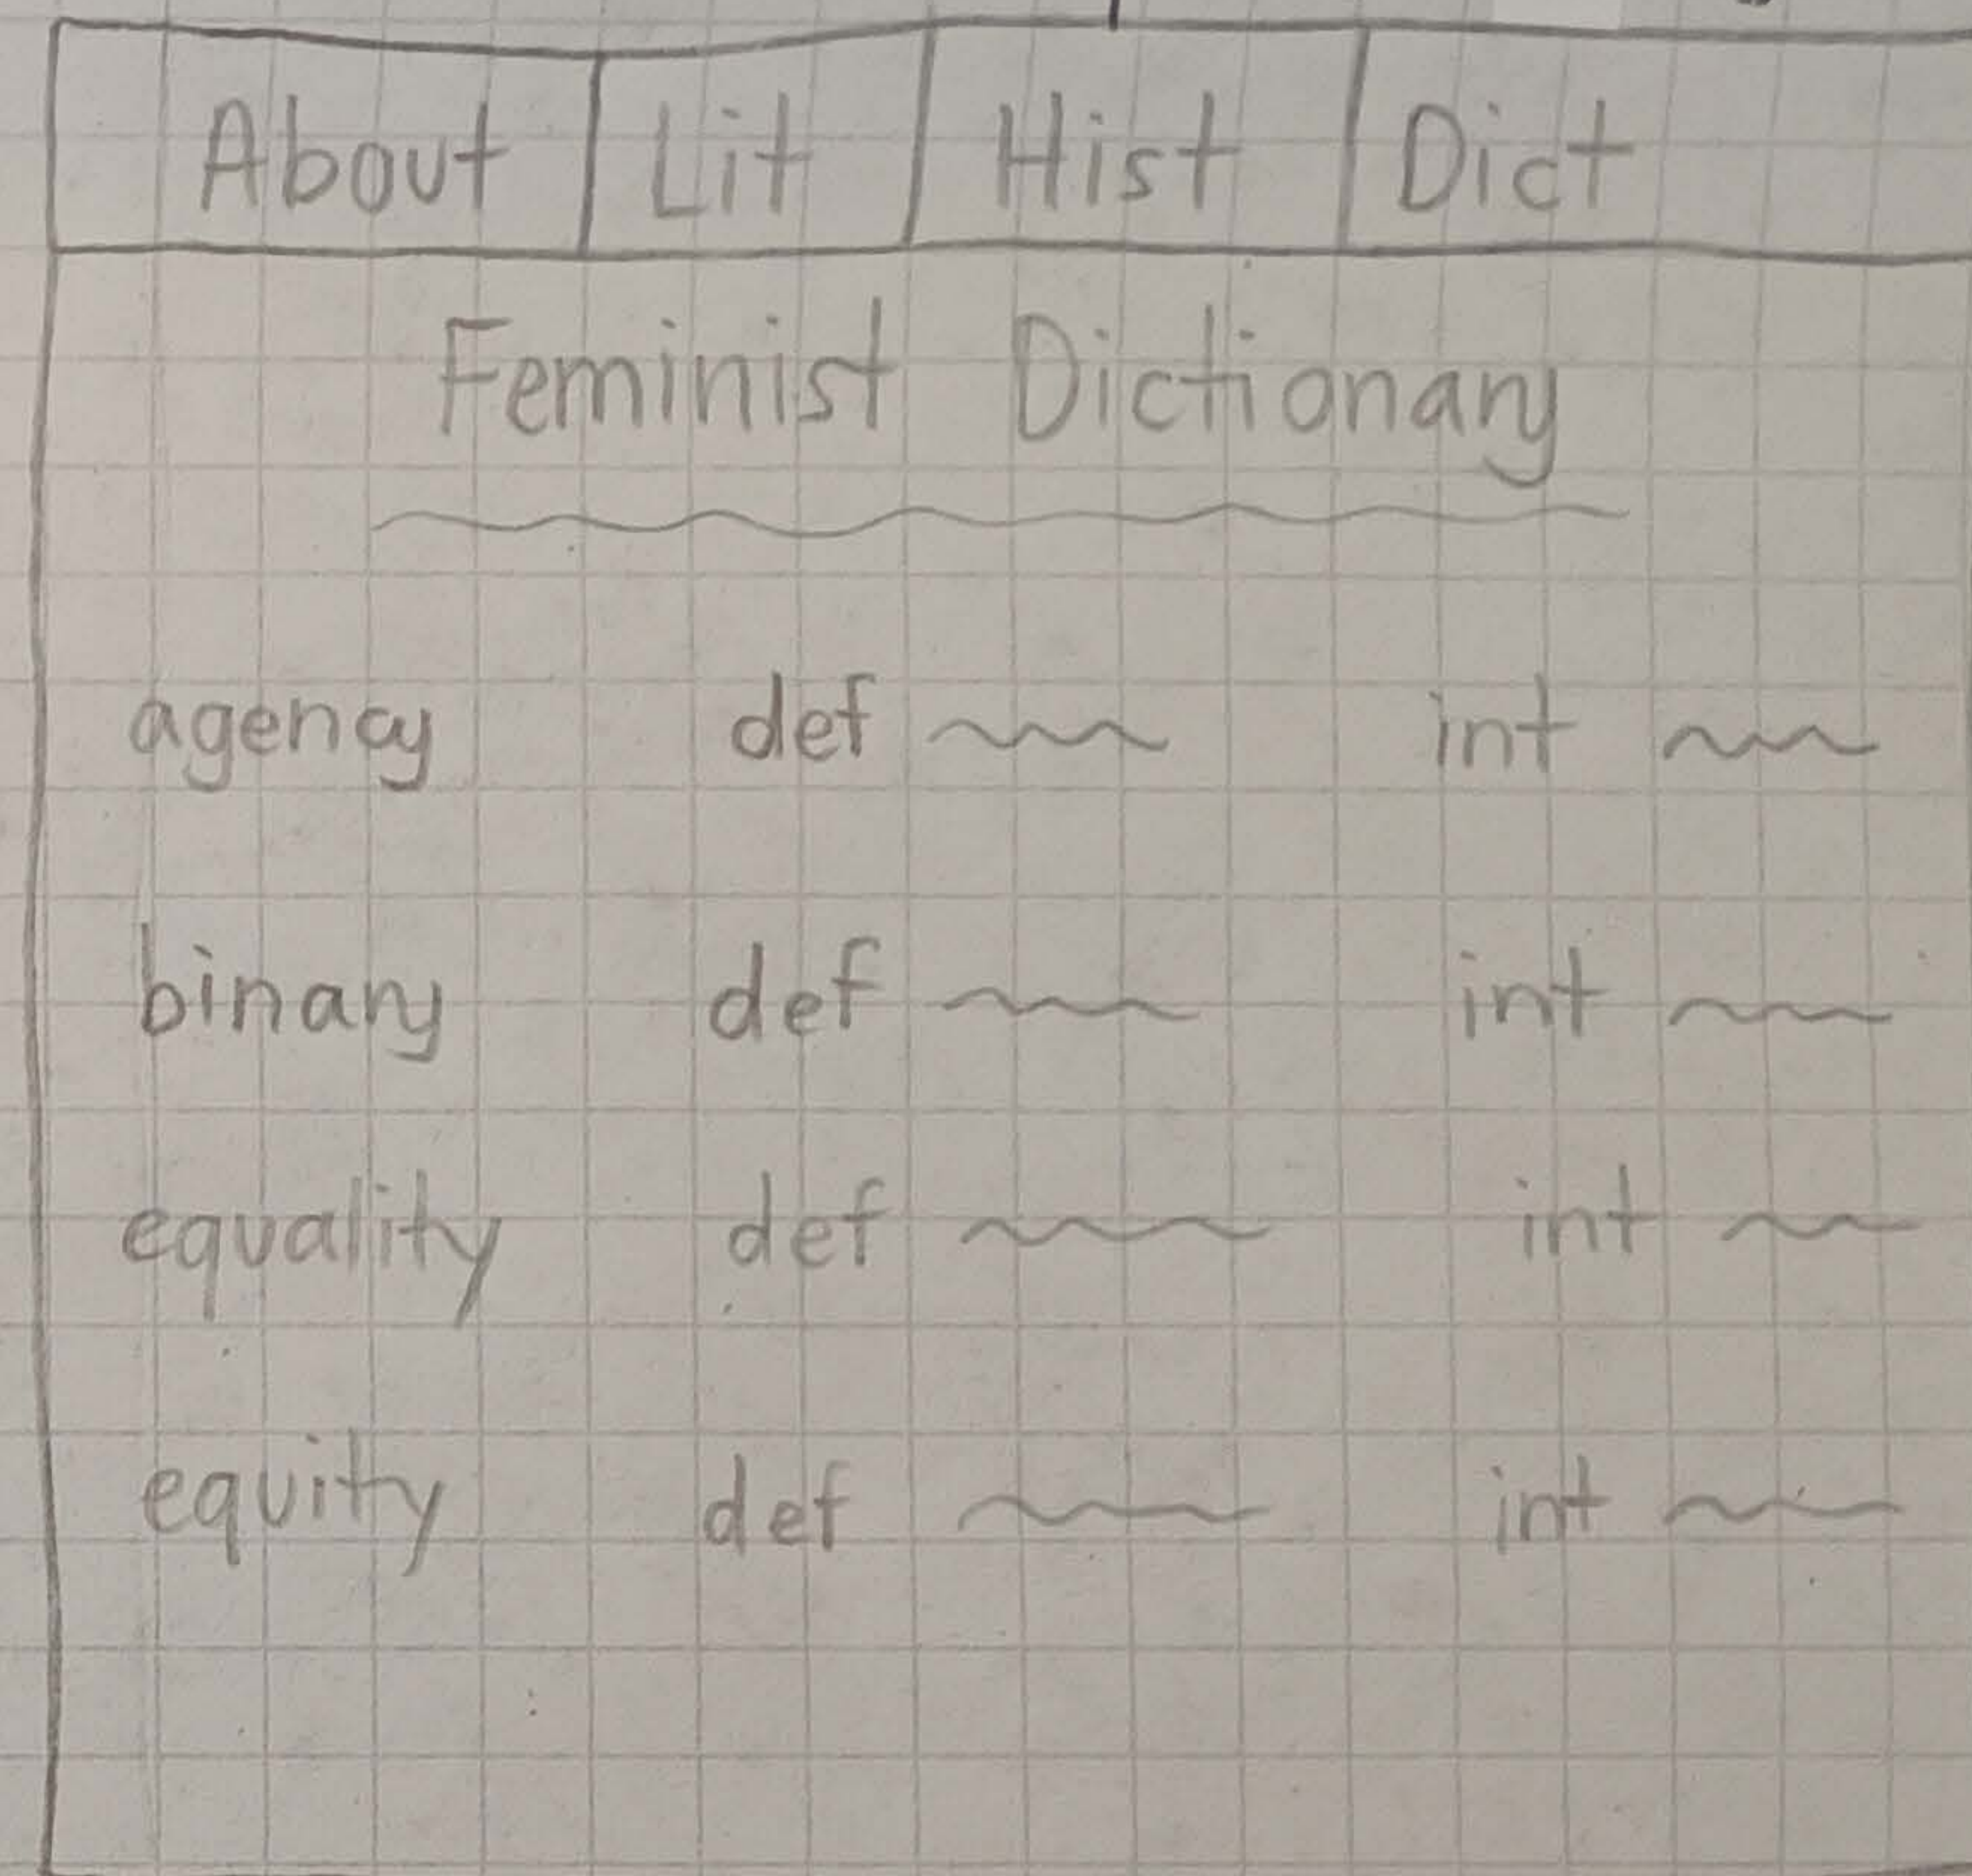 About Lit Hist Dict
Feminist Dictionary
agency def int
binary def int
equality def int
equity def int